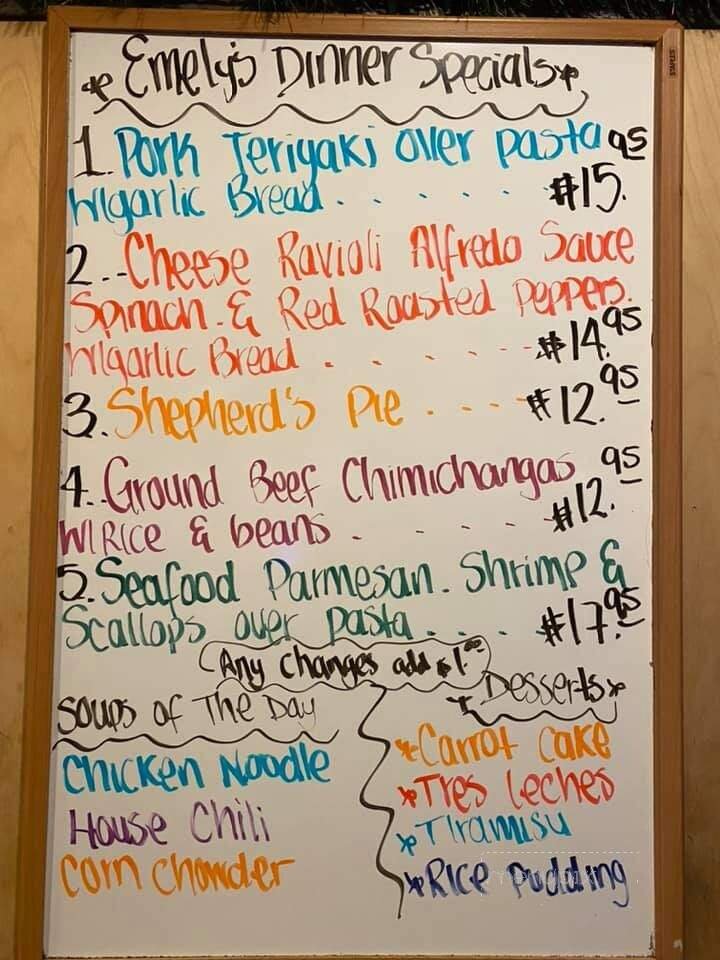 Emely's Dinner Specials
1. Pork Teriyaki over pasta
W/garlic Bread . . . . . $15.95
2.-Cheese Ravioli Alfredo Sauce
Spinach. & Red Roasted Peppers.
W/garlic Bread . . . . . . $14.95
3. Shepherd's Pie . . . . $12.95
4. Ground Beef Chimichangas
W/ Rice & beans . . . . . $12.95
5. Seafood Parmesan. Shrimp &
Scallops over pasta . . . $17.95
Any changes add $1.00
Soups of The Day
Chicken Noodle
House Chili
Corn Chowder
Desserts
*Carrot Cake
*Tres Leches
*Tiramisu
*Rice Pudding
STAPLES